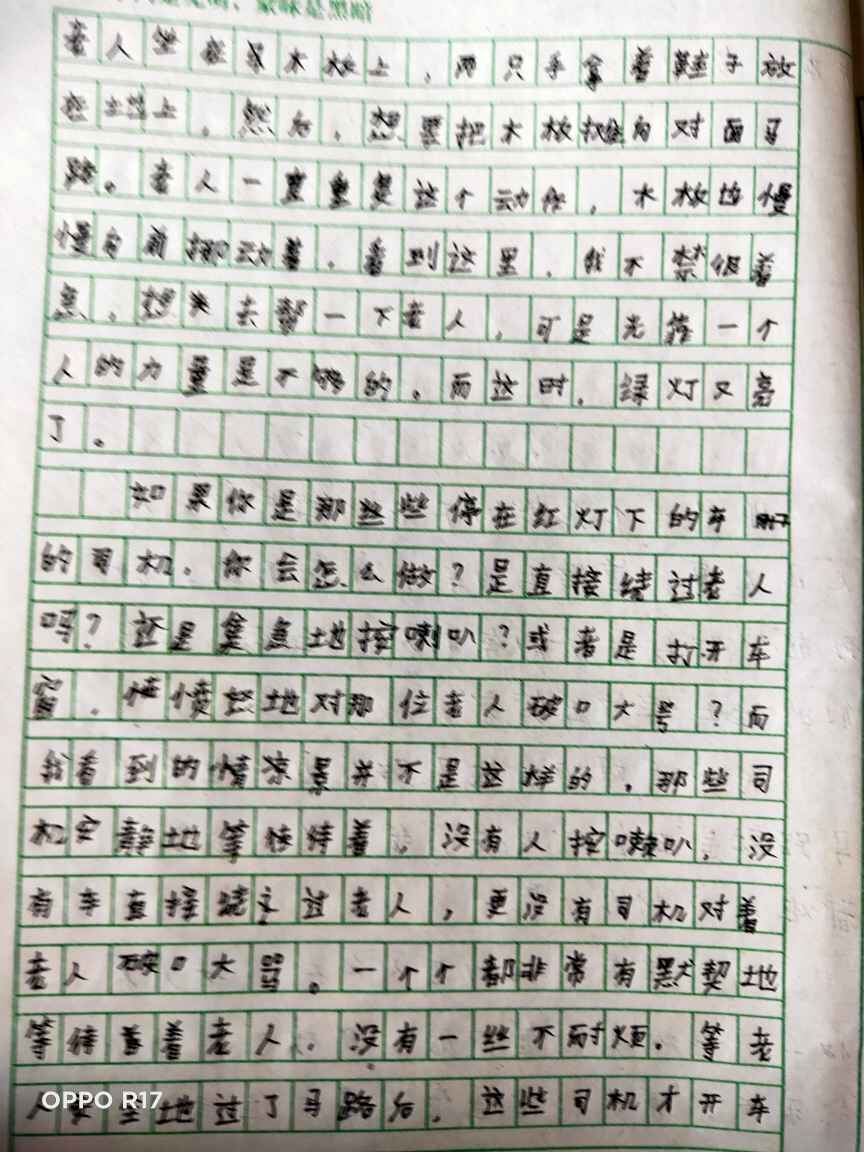 蒙昧是黑暗
老人坐在木板上,两只手拿着鞋子放
在土地上,然后,想要把木板拖向对面马
路。老人一直重复这个动作,木板也慢
慢向前挪动着。看到这里,我不禁很着
急,想来去帮一下老人,可是光靠一个
人的力量是不够的。而这时,绿灯又亮
了。
如果你是那些些停在红灯下的车
的司机,你会怎么做?是直接绕过老人
吗?还是集急地按喇叭?或者是打开车
窗,愤怒地对那位老人破口大号?而
我看到的情景并不是这样的,那些司
机安静地等待着,没有人按喇叭,没
有车直接绕过老人,更没有司机对着
老人破口大骂。一个个都非常有默契地
等待着着老人,没有一丝不耐烦。等老
人安全地过了马路后,这些司机才开车
OPPO R17